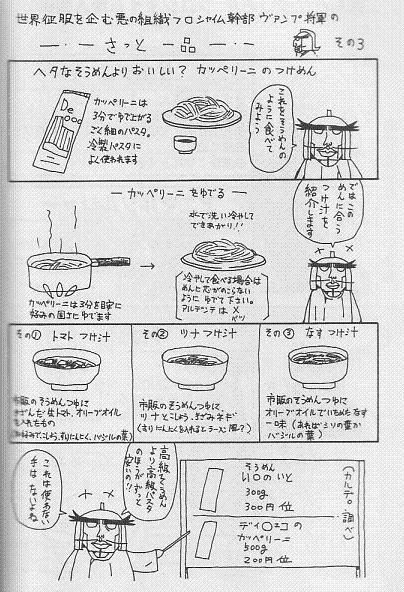 世界征服を企む悪の組織フロシャイム幹部 ヴァンプ将軍の
さっと一品 その3
ヘタなそうめんよりおいしい？ カッペリーニのつけめん
De
カッペリーニは
3分でゆで上がる
ごく細のパスタ。
冷製パスタに
よく使われます
これをそうめんの
ように食べて
みよう
カッペリーニをゆでる
水で洗い冷やして
できあがり!!
カッペリーニは3分を目安に
好みの固さにゆでます
冷やして食べる場合は
めんに芯がのこらない
ようにゆでて下さい。
アルデンテは×
バツ
ではこの
めんに合う
つけ汁を
紹介します
その① トマトつけ汁
市販のそうめんつゆに
きざんだ生トマト、オリーブオイル
を入れたもの
(お好みでこしょう、すりにんにく、バジルの葉)
その② ツナつけ汁
市販のそうめんつゆに
ツナとこしょう、きざみネギ
(すりにんにくを入れるとラーメン風?)
その③ なすつけ汁
市販のそうめんつゆに
オリーブオイルでいためたなす
一味(あればシソの葉か
バジルの葉)
高級そうめん
より高級パスタ
のほうがずっと
安いの!!
これは使わない
手はないよね
(カルデ。調べ)
そうめん
い〇のいと
300g
300円位
ディ〇エコの
カッペリーニ
500g
200円位